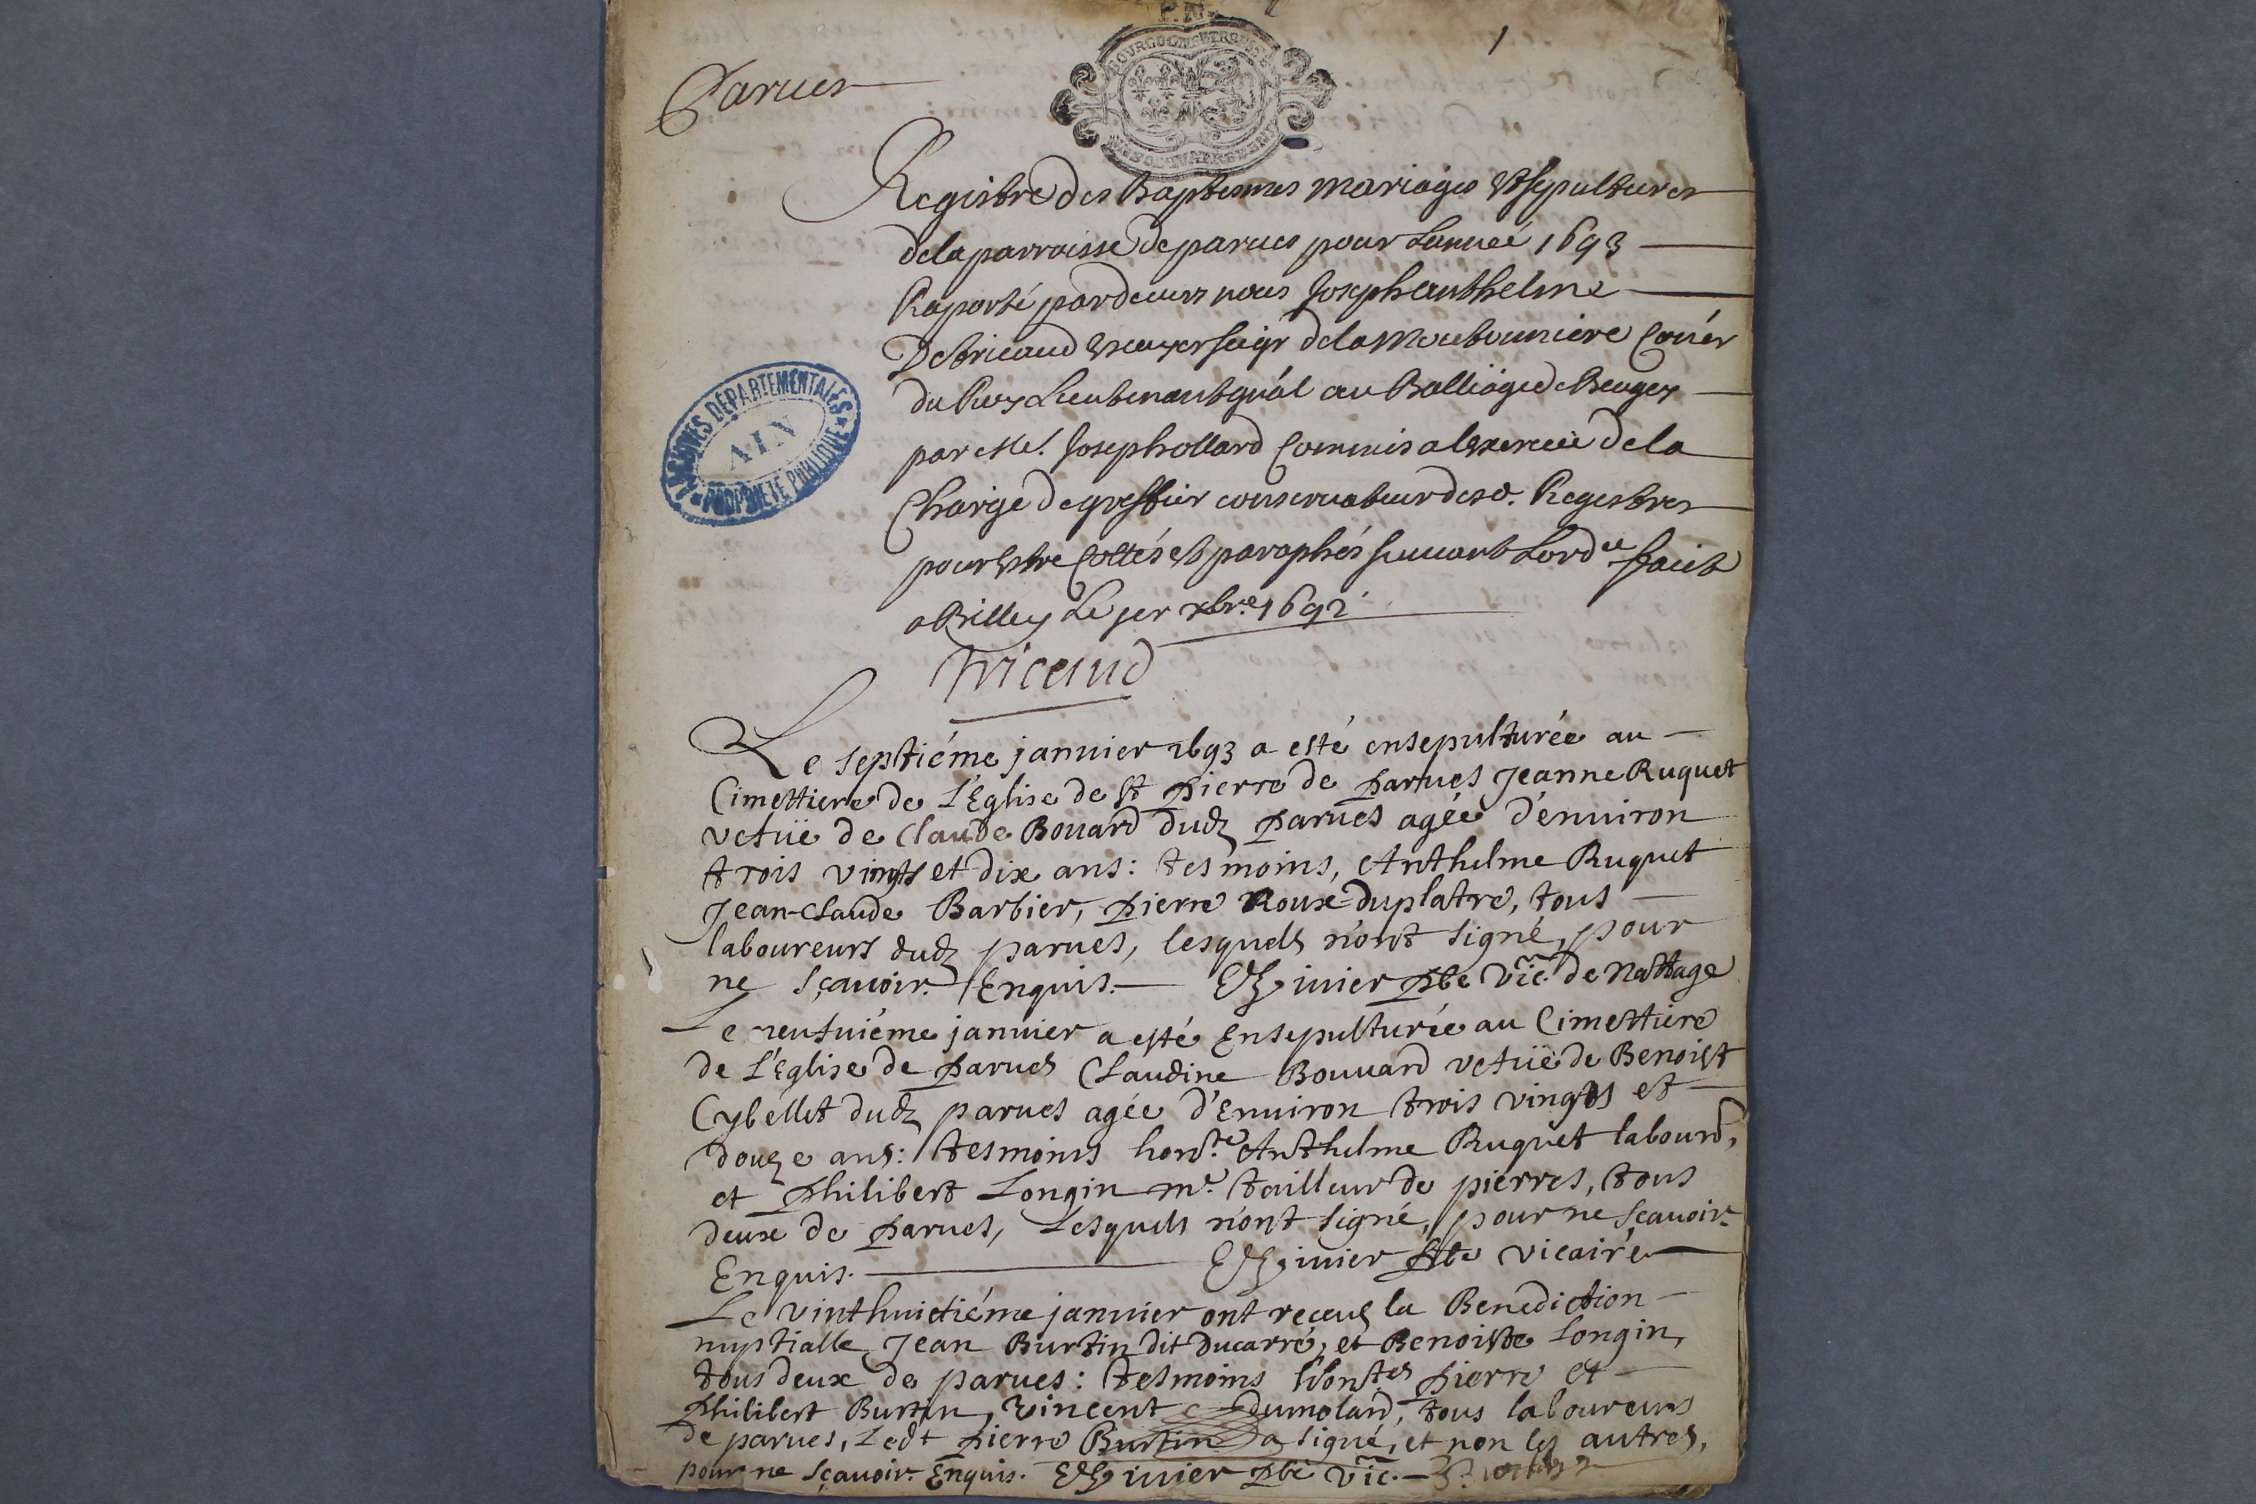 1
Parues
BOURGOGNE ET BRESSE
ARCHIVES DEPARTEMENTALES
AIN
PROPRIETE PUBLIQUE
Registre des Baptesmes mariages et sepultures
de la parroisse de parues pour Lannee 1693
Raporté pardeuers nous Joseph anthelme
De tricaud escuyer seigr de la Moubonniere Coner
du Roy Lieutenant gnál au Balliage de Beugey
par Me. Joseph ollard Commis a lexercice de la
Charge de greffier conseruateur desd. Registres
pour estre Cottés et paraphés suiuant Lordce faict
a Billey Le per xbre 1692
Tricaud
Le septiéme januier 1693 a esté ensepulturée au
Cimettiere de L'Eglise de St pierre de parues Jeanne Ruquet
vefue de Claude Bouard dudz parues agée d'enuiron
trois vingts et dix ans: tesmoins, Anthelme Ruquet
Jean-Claude Barbier, pierre Roux=duplatre, tous
laboureurs dudz parues, lesquels n'ont signé, pour
ne sçauoir. Enquis. iuier pbe vic. de Nattage
Le neufuiéme januier a esté Ensepulturée au Cimettiere
de L'Eglise de parues Claudine Bouuard vefue de Benoist
Cybéllet dudz parues agée d'Enuiron trois vingts et
douze ans: tesmoins honste Anthelme Ruquet labourd,
et philibert Longin me. tailleur de pierres, tous
deux de parues, Lesquels n'ont signé, pour ne sçauoir.
Enquis. iuier pbe vicaire
Le vinthuictiéme januier ont receus la Benediction
nuptialle Jean Burtin dit Ducarré, et Benoiste Longin,
tous deux de parues: tesmoins honstes pierre et
philibert Burtin, vincent Dumolard, tous laboureurs
de parues, Ledt pierre Burtin a signé, et non les autres,
pour ne sçauoir. Enquis. iuier pbe vic.